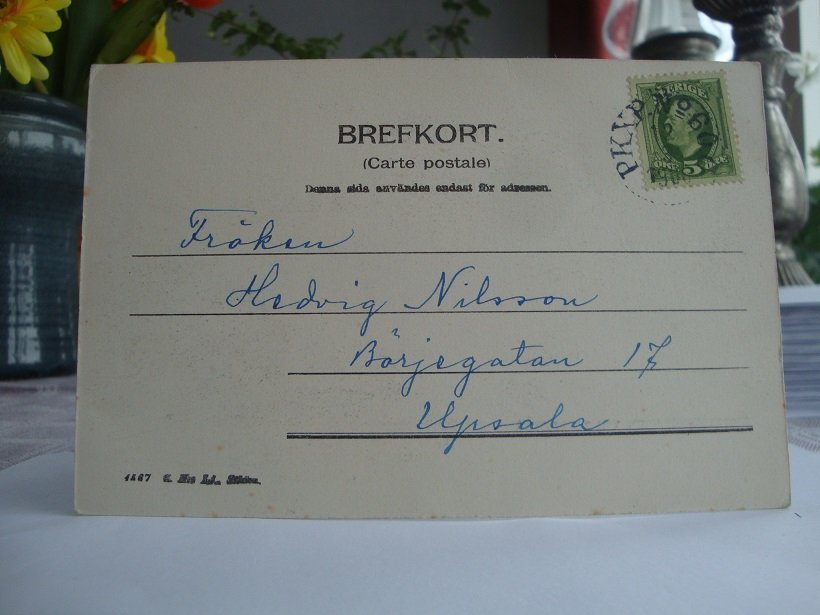 BREFKORT.
(Carte postale)
Denna sida användes endast för adressen.
SVERIGE
5
PKXP
Fröken
Hedvig Nilsson
Börjegatan 17
Upsala